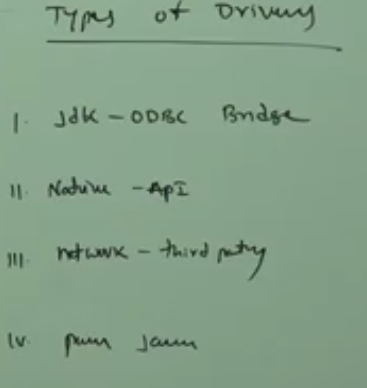 Types of Drivers
I. Jdk - ODBC Bridge
II. Native - ApI
III. network - third party
IV. pure Java